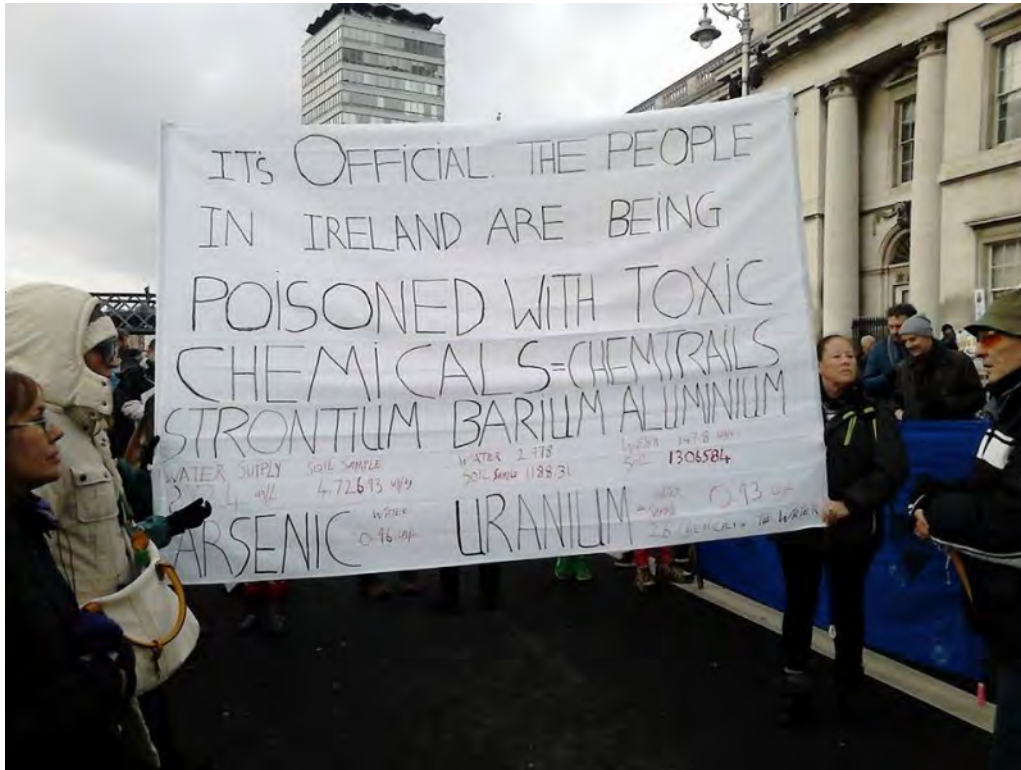 ITs OFFICIAL. THE PEOPLE
IN IRELAND ARE BEING
POISONED WITH TOXIC
CHEMICALS=CHEMTRAILS
STRONTIUM BARIUM ALUMINIUM
WATER SUPPLY SOIL SAMPLE WATER 2.778 147.8
4.72693 SOIL SAMPLE 1188.31 SOIL 1306584
ARSENIC WATER 0.96 URANIUM WATER 0.93
26 CHEMICALS IN THE WATER